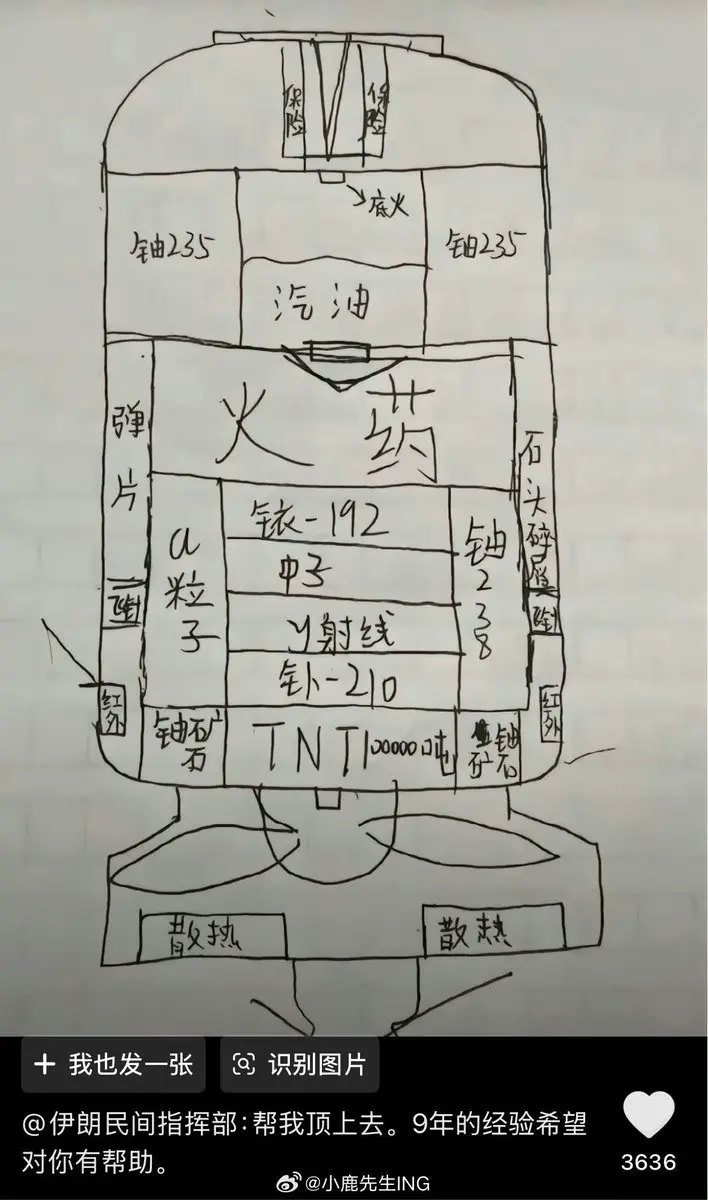 保险
保险
底火
铀235
铀235
汽油
火药
弹片
石头碎屑
a粒子
铱-192
中子
y射线
钋-210
铀238
红外
红外
铀矿石
TNT1000000吨
铀矿石
散热
散热
我也发一张
识别图片
@伊朗民间指挥部:帮我顶上去。9年的经验希望
对你有帮助。
3636
@小鹿先生ING